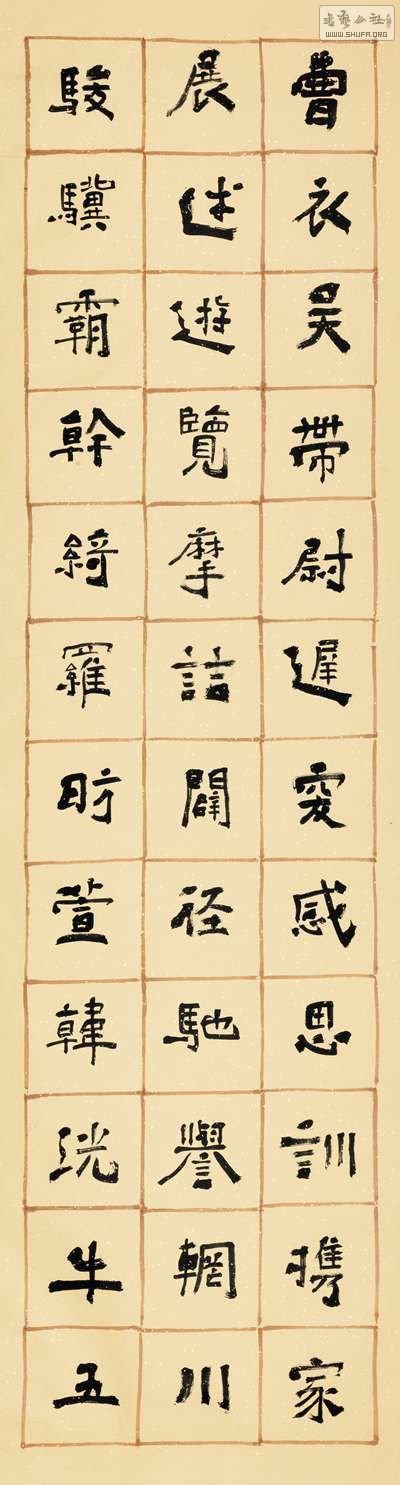 書藝公社
WWW.SHUFA.ORG
曹衣吴帶尉遲感思訓携家
展述遊覽摩詰闢径馳譽輞川
駿驥霸幹綺羅昉萱韓牛五